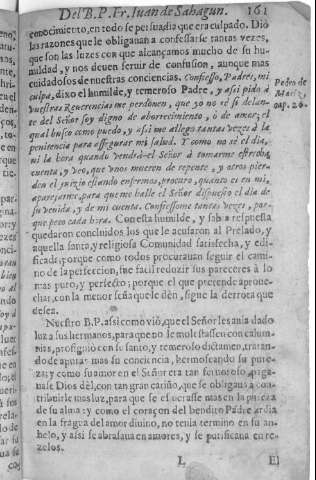 Del B. P. Fr. Iuan de Sahagun. 161
conocimiento, en todo se persuadia que era culpado. Dió
las razones que le obligauan a confessarse tantas vezes,
que son las luzes con que alcançamos mucho de su hu-
mildad, y nos deuen seruir de confusion, aunque mas
cuidadosos de nuestras conciencias. Confiesso, Padres, mi
culpa, dixo el humilde, y temeroso Padre, y assi pido a
vuestras Reuerencias me perdonen, que yo no sè si delan-
te del Señor soy digno de aborrecimiento, ò de amor; el
qual busco como puedo, y assi me allego tantas vezes à la
penitencia para assegurar mi salud. Y como no sè el dia,
ni la hora quando vendrà el Señor à tomarme estrecha
cuenta, y veo, que vnos mueren de repente, y otros pier-
den el juyzio estando enfermos, procuro, quanto es en mi,
aparejarme, para que me halle el Señor dispuesto el dia de
su venida, y de mi cuenta. Confiessome tantas vezes, por-
que peco cada hora. Con esta humilde, y sabia respuesta
quedaron concluidos los que le acusaron al Prelado, y
aquella santa, y religiosa Comunidad satisfecha, y edi-
ficada; porque como todos procurauan seguir el cami-
no de la perfeccion, fue facil reduzir sus pareceres à lo
mas puro, y perfecto; porque el que pretende aproue-
char, con la menor seña que le dèn, sigue la derrota que
desea.
Nuestro B. P. assi como viò, que el Señor les auia dado
luz a sus hermanos, para que no le molestassen con calum-
nias, prosiguiò en su santo, y temeroso dictamen, tratan-
do de apurar mas su conciencia, hermoseando su pure-
za; y como su amor en el Señor era tan feruoroso, paga-
uase Dios dèl, con tan gran cariño, que se obligaua a con-
tribuirle mas luz, para que se esmerasse mas en la pureza
de su alma: y como el coraçon del bendito Padre ardia
en la fragua del amor diuino, no tenia termino en su an-
helo, y assi se abrasaua en amores, y se purificaua en re-
zelos.
L El
Pedro de
Mariz,
cap. 20.